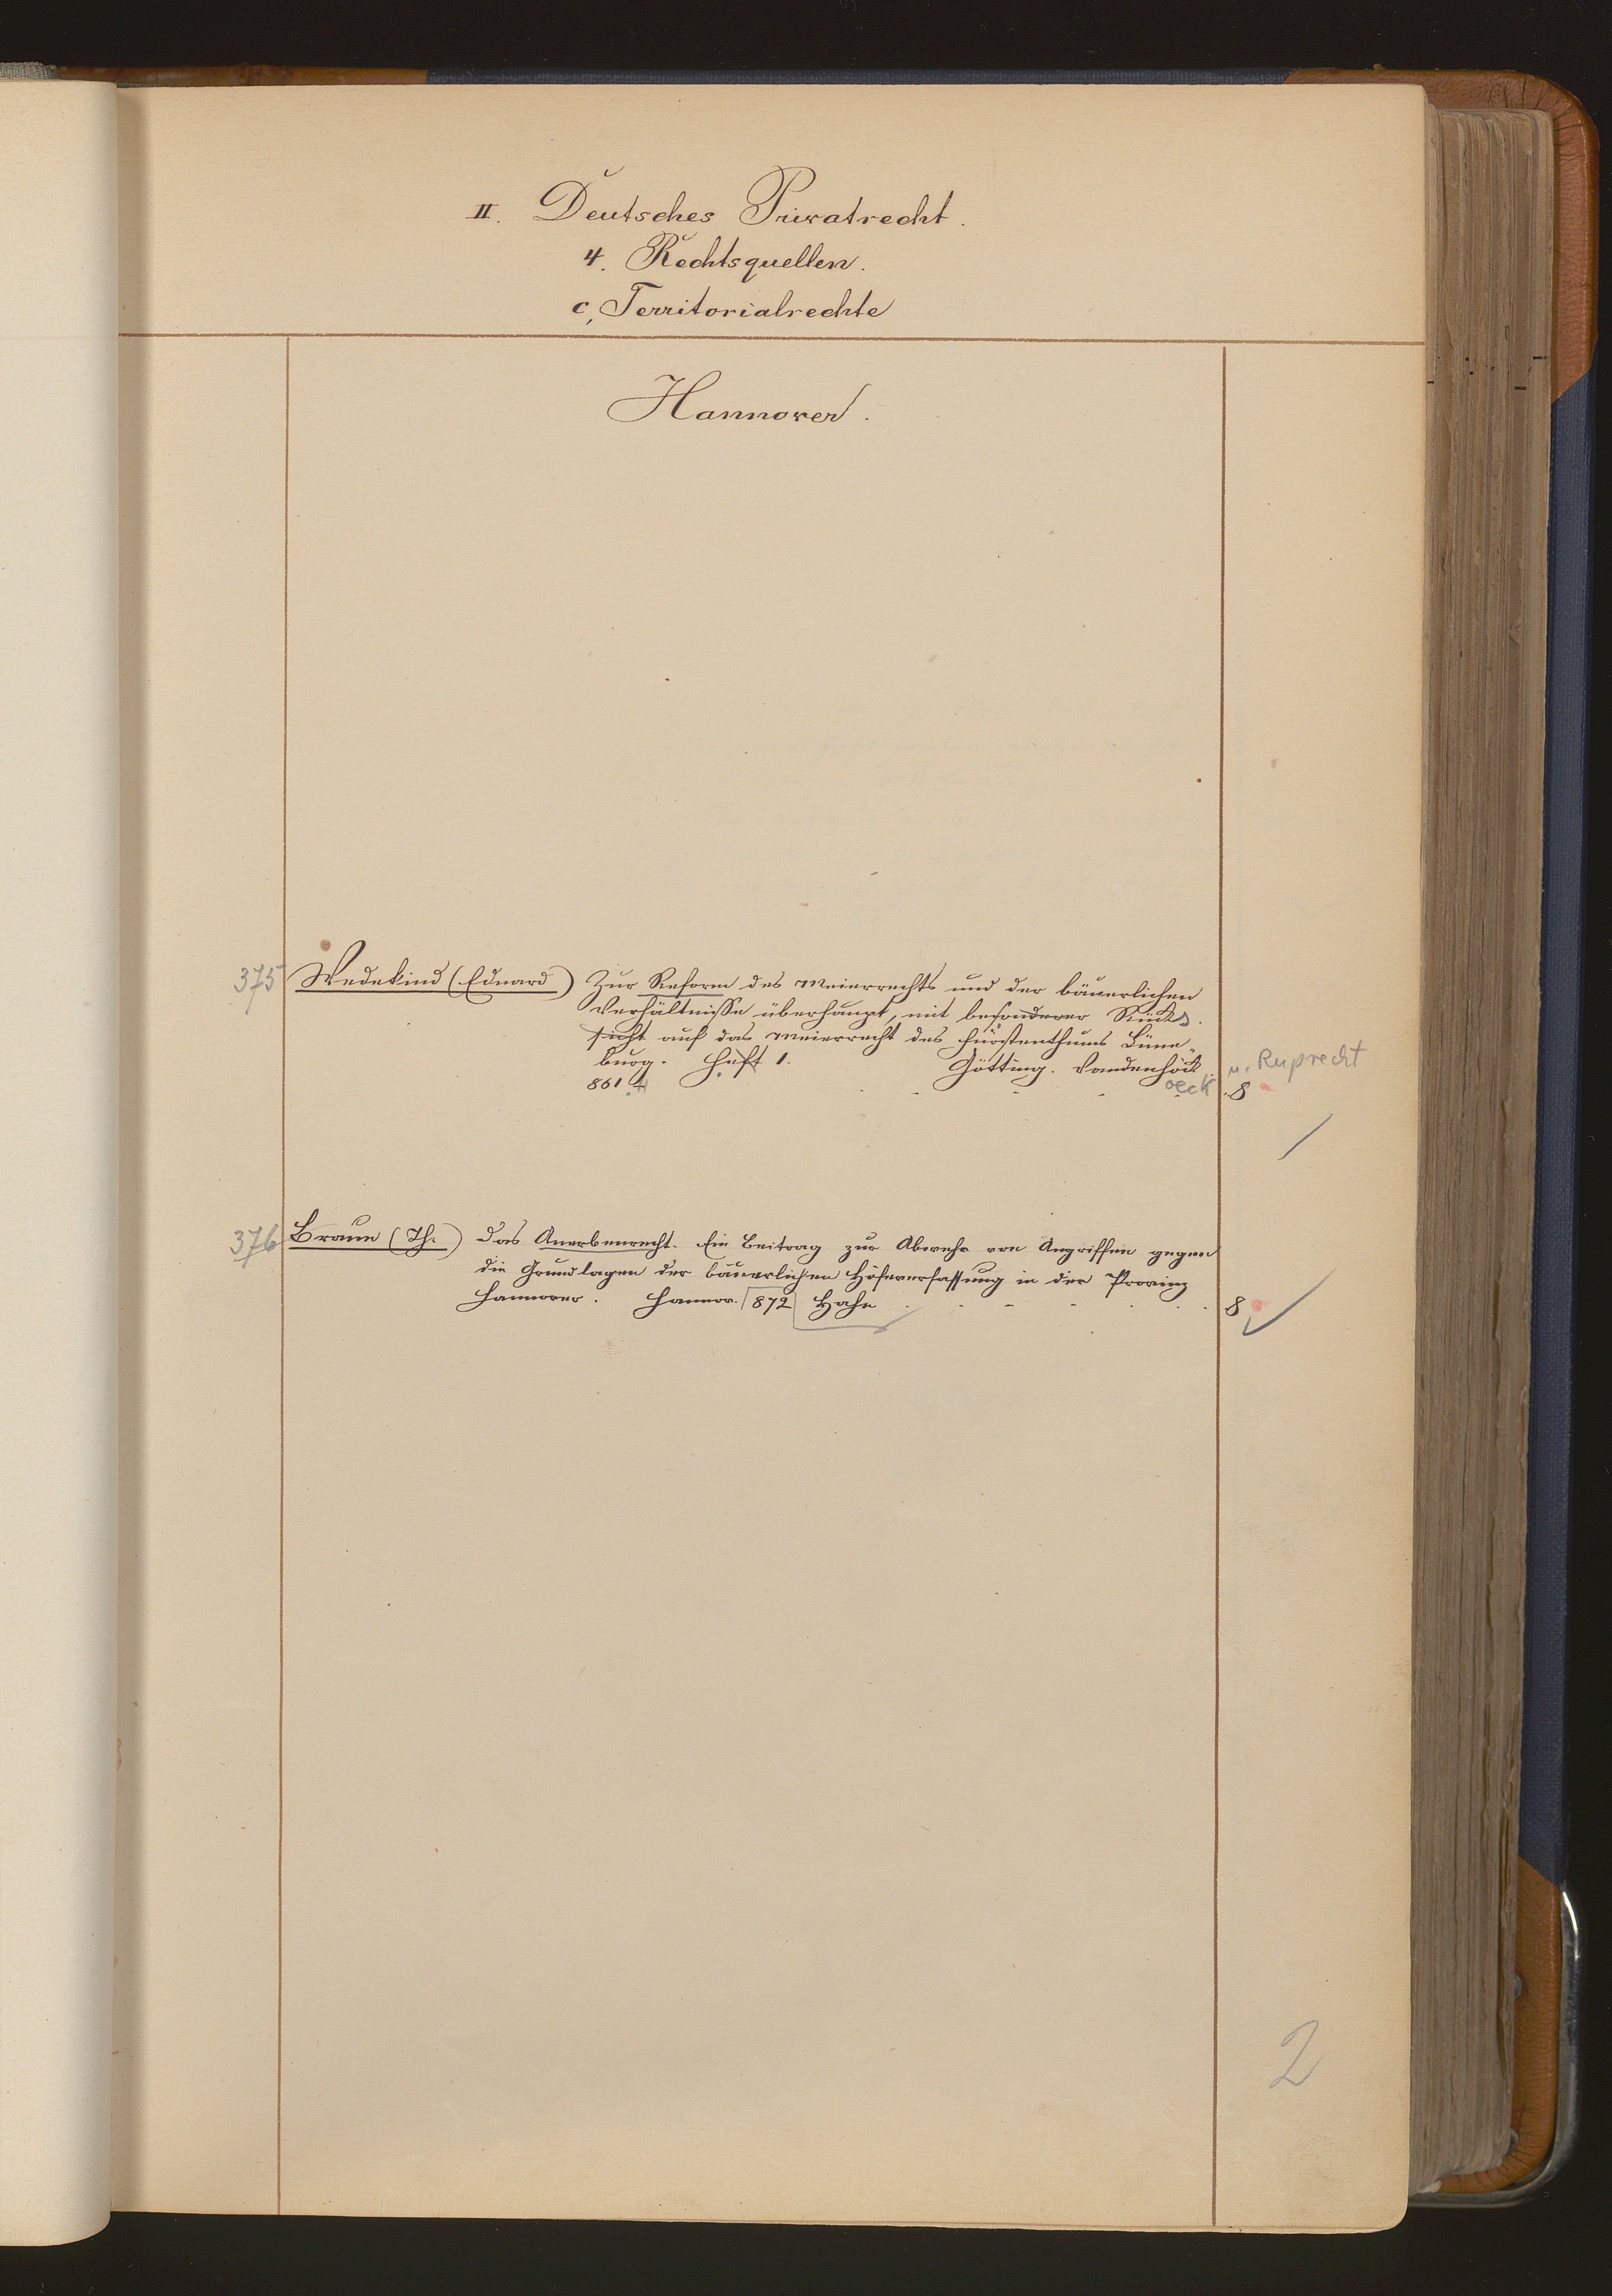 II. Deutsches Privatrecht.
4. Rechtsquellen.
c, Territorialrechte
Hannover.
375 Wedekind (Eduard) Zur Reform des Meierrechts und der bäuerlichen
Verhältnisse überhaupt, mit besonderer Rück-
sicht auf das Meierrecht des Fürstenthums Lüne-
burg. Heft 1. Götting. Vandenhöck u. Ruprecht
861 oeck 8
376 Braun (Th.) Das Anerbenrecht. Ein Beitrag zur Abwehr von Angriffen gegen
die Grundlagen der bäuerlichen Höfeverfassung in der Provinz
Hannover. Hannov. 872 Hahn 8
2